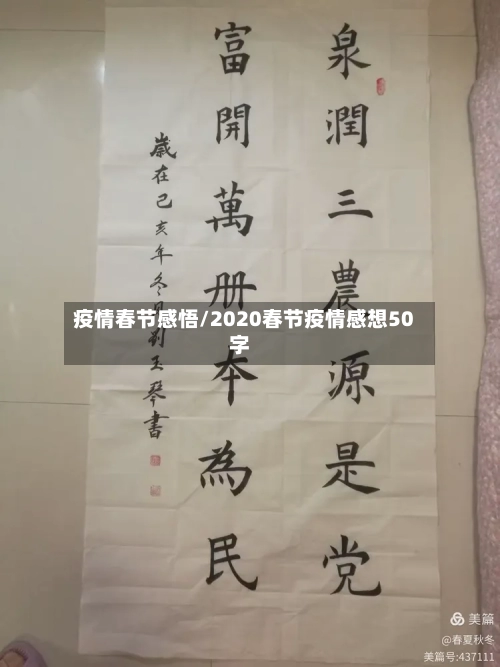 泉潤三農源是党
富開萬册本為民
歲在己亥年冬月劉玉琴書
疫情春节感悟/2020春节疫情感想50
字
美篇
@春夏秋冬
美篇号:437111